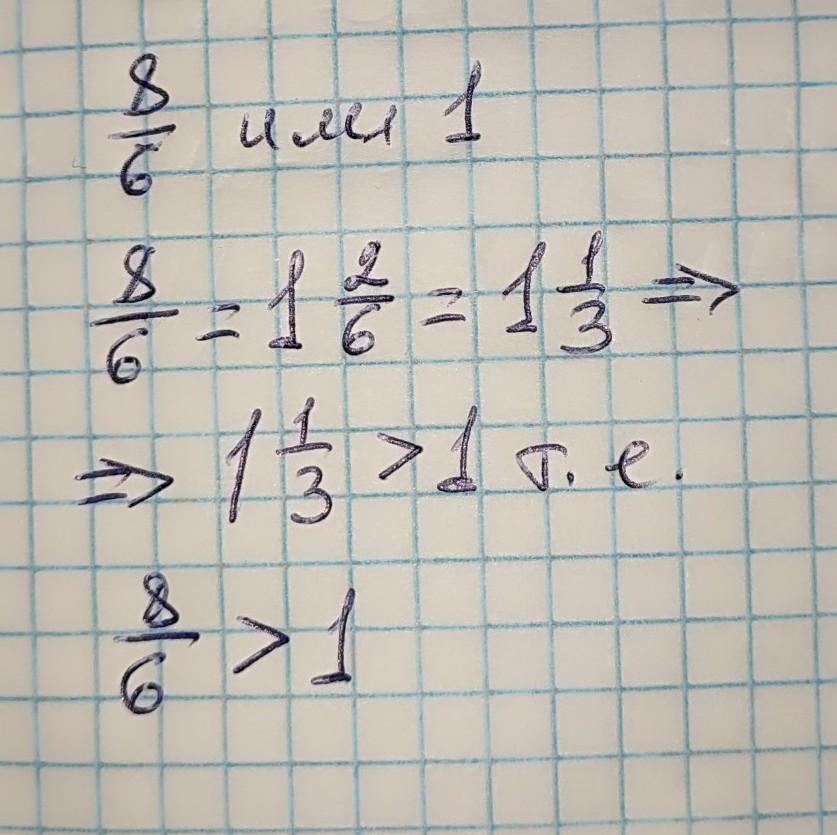 8/6 или 1
8/6 = 1 2/6 = 1 1/3 ⇒
⇒ 1 1/3 > 1 т. е.
8/6 > 1